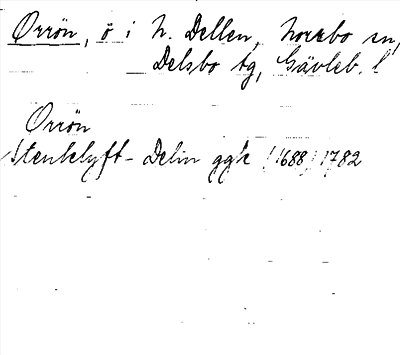 Orrön, ö i N. Dellen, Norrbo sn,
Delsbo tg, Gävleb. l
Orrön
Stenklyft- Delin ggk (1688) 1782